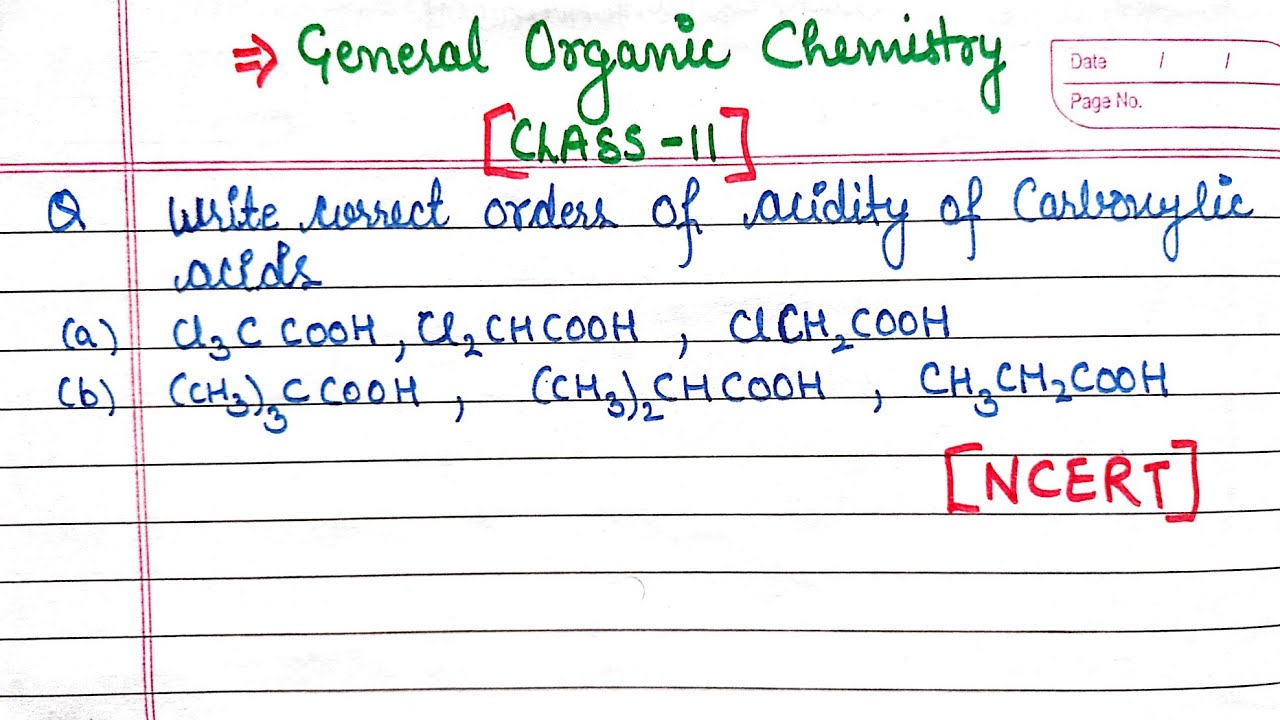 ⇒ General Organic Chemistry
Date / /
Page No.
[CLASS-11]
Q Write correct orders of acidity of Carboxylic
acids
(a) Cl₃C COOH, Cl₂CHCOOH, ClCH₂COOH
(b) (CH₃)₃C COOH, (CH₃)₂CHCOOH, CH₃CH₂COOH
[NCERT]